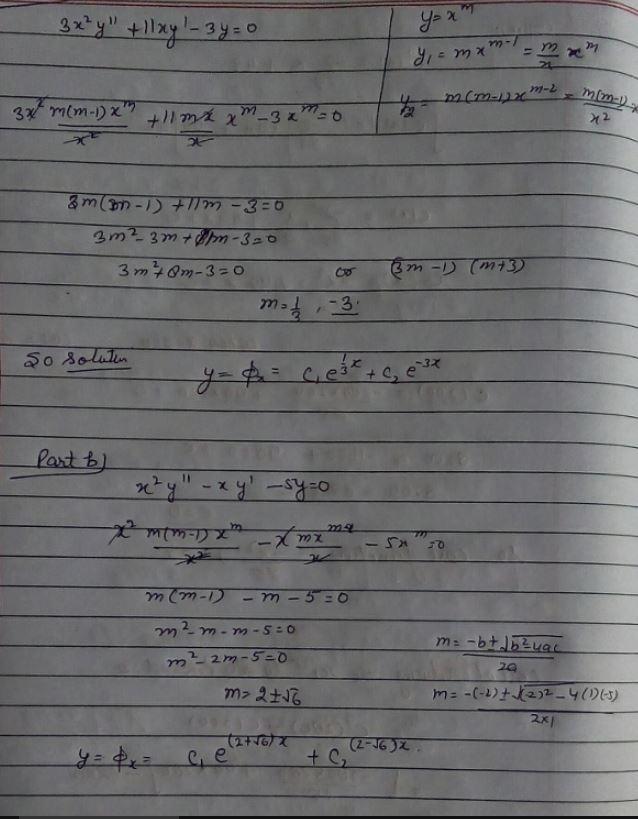 3x² y'' + 11xy' - 3y = 0
y = x^m
y₁ = m x^{m-1} = m/x x^m
y₂ = m(m-1) x^{m-2} = m(m-1)/x²
3x² m(m-1) x^m / x² + 11 m x / x x^m - 3 x^m = 0
3m(m-1) + 11m - 3 = 0
3m² - 3m + 11m - 3 = 0
3m² + 8m - 3 = 0 or (3m - 1) (m + 3)
m = 1/3 , -3.
So Solution
y = ϕ_x = c₁ e^{1/3 x} + c₂ e^{-3x}
Part b)
x² y'' - x y' - 5y = 0
x² m(m-1) x^m / x² - x m x^m / x - 5x^m = 0
m(m-1) - m - 5 = 0
m² - m - m - 5 = 0
m² - 2m - 5 = 0
m = -b ± √b² - 4ac / 2a
m = 2 ± √6
m = -(-2) ± √(2)² - 4(1)(-5) / 2×1
y = ϕ_x = c₁ e^{(2+√6)x} + c₂^{(2-√6)x}.